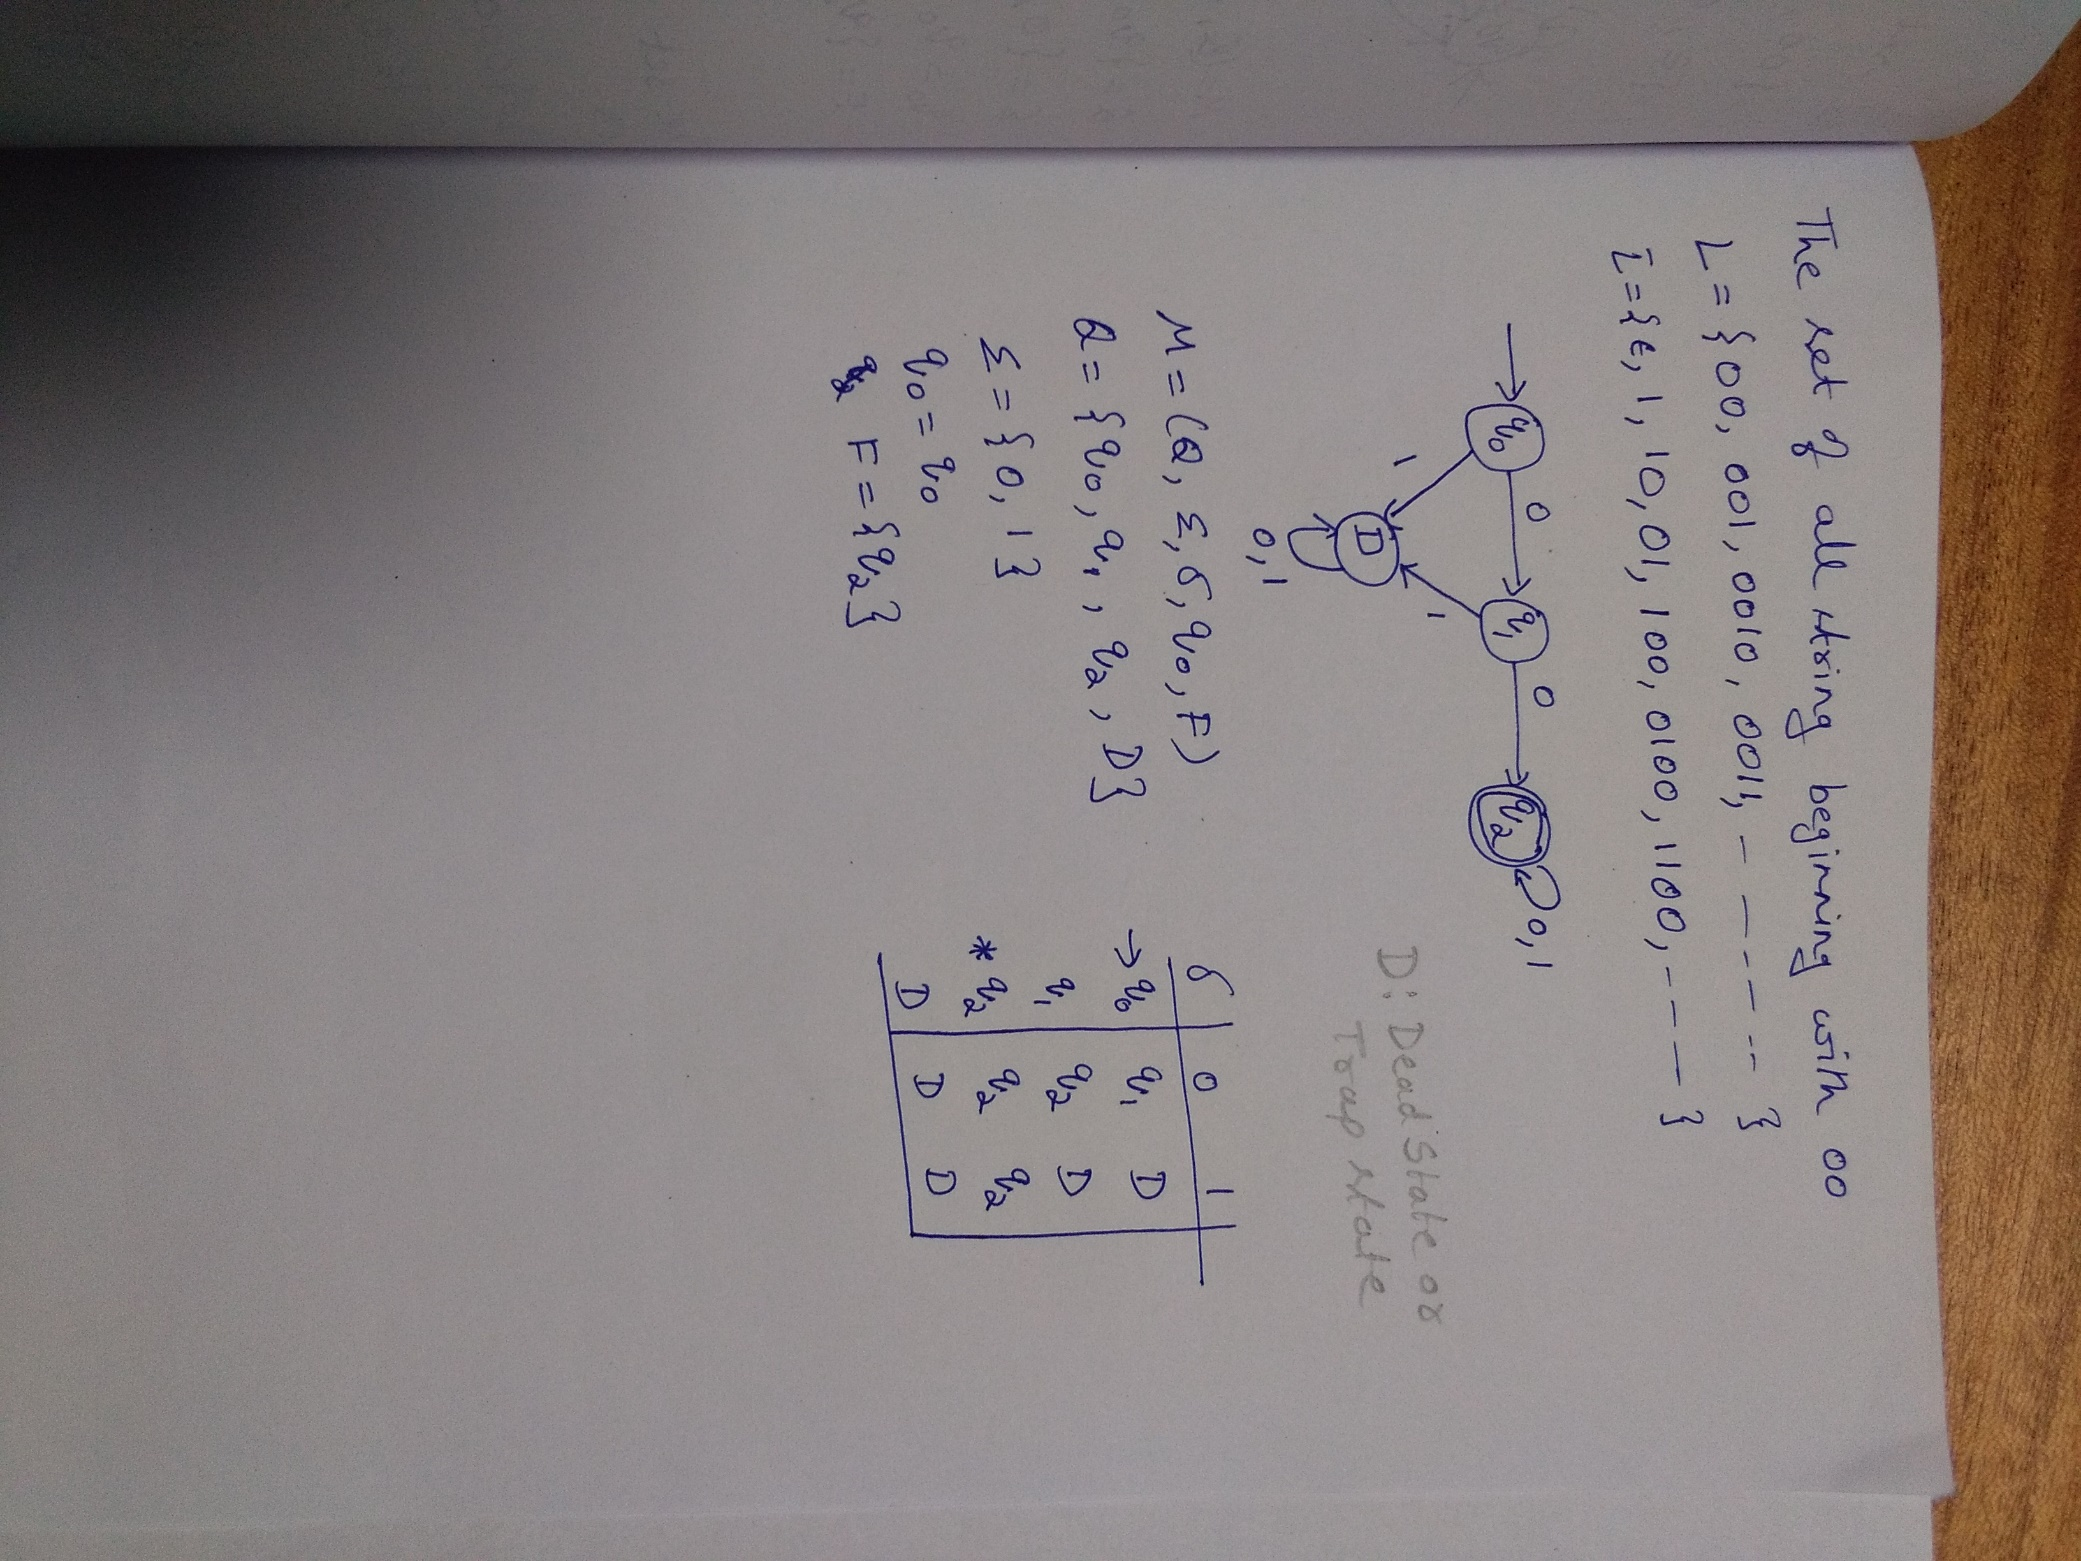 The set of all string beginning with 00
L = {00, 001, 0010, 0011, - - - - - - }
L̄ = {ε, 1, 10, 01, 100, 0100, 1100, - - - - }
q0 0 q1 0 q2 0,1
1 1
D
0,1
D: Dead State or
Trap state
M = (Q, Σ, δ, q0, F)
Q = {q0, q1, q2, D}
Σ = {0, 1}
q0 = q0
F = {q2}
δ 0 1
→ q0 q1 D
q1 q2 D
* q2 q2 q2
D D D